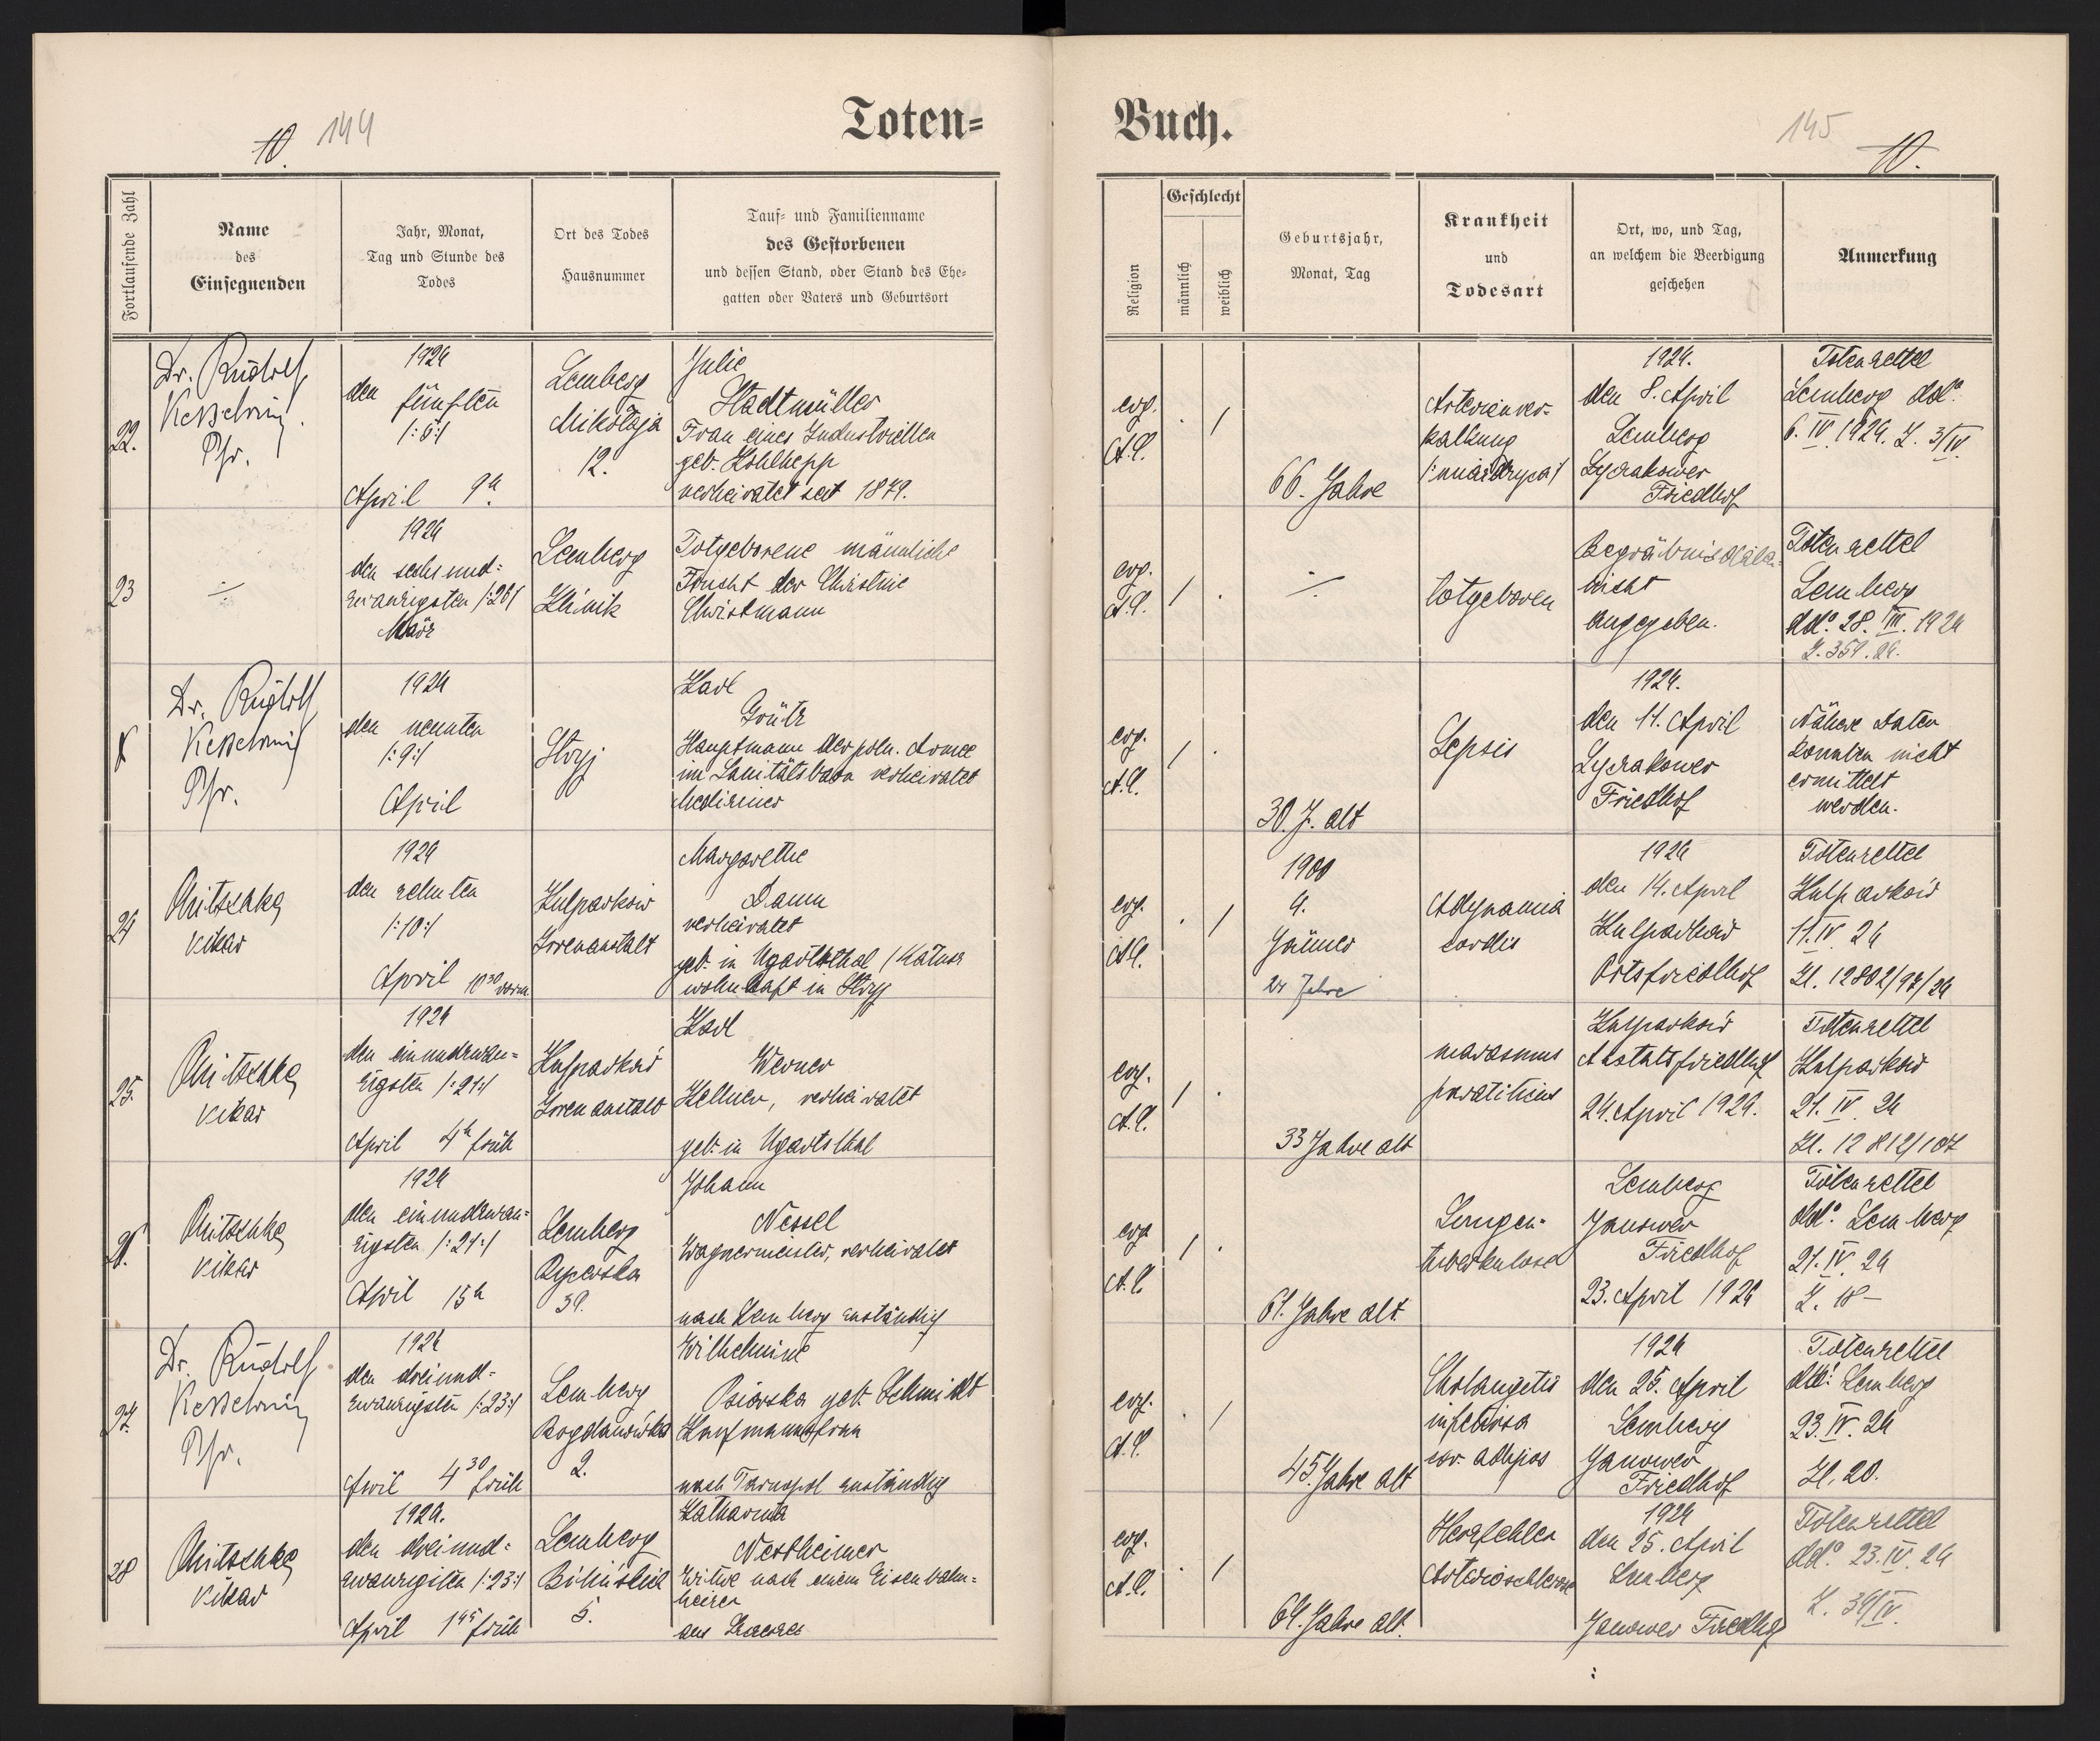 Toten-
Buch.
10. 144
145 10.
Fortlaufende Zahl
Name
des
Einsegnenden
Jahr, Monat,
Tag und Stunde des
Todes
Ort des Todes
Hausnummer
Tauf- und Familienname
des Gestorbenen
und dessen Stand, oder Stand des Ehe-
gatten oder Vaters und Geburtsort
Religion
Geschlecht
männlich
weiblich
Geburtsjahr,
Monat, Tag
Krankheit
und
Todesart
Ort, wo, und Tag,
an welchem die Beerdigung
geschehen
Anmerkung
22.
Dr. Rudolf
Kesselring
Pfr.
1924
den fünften
/:5:/
April 9h.
Lemberg
Mikołaja
12.
Julie
Stadtmüller
Frau eines Industriellen
geb. Kohlhepp
verheiratet seit 1879.
evg.
A.C.
66. Jahre
Arterienver-
kalkung
1924.
den 8. April
Lemberg
Lyczakower
Friedhof
Totenzettel
Lemberg ddo.
6. IV. 1924. Z. 3/IV.
23
1924
den sechsund-
zwanzigsten /:26/
März
Lemberg
Klinik
Totgeborene männliche
Frucht der Christine
Christmann
evg.
A.C.
totgeboren
Begräbnis
nicht
angegeben.
Totenzettel
Lemberg
ddo. 28. III. 1924
Z. 359. 24.
Dr. Rudolf
Kesselring
Pfr.
1924
den neunten
/:9:/
April
Stryj
Karl
Grütz
Hauptmann der poln. Armee
im Sanitätsbaon verheiratet
Mediziner
evg.
A.C.
30. J. alt
Sepsis
1924.
den 11. April
Lyczakower
Friedhof
Nähere Daten
konnten nicht
ermittelt
werden.
24
Mitschke
Vikar
1924
den zehnten
/:10:/
April 10 30 vorm.
Kulparków
Irrenanstalt
Margarethe
Damm
verheiratet
geb. in Ugartsthal /Kałusz
wohnhaft in Stryj
evg.
A.C.
1900
9.
Jänner
24 Jahre
Adynamia
cordis
1924
den 14. April
Kulparków
Ortsfriedhof
Totenzettel
Kulparków
11. IV. 24
Zl. 12802/97/24
25.
Mitschke
Vikar
1924
den einundzwan-
zigsten /:21:/
April 4h früh
Kulparków
Irrenanstalt
Karl
Werner
Kellner, verheiratet
geb. in Ugartsthal
evg.
A.C.
33 Jahre alt
marasmus
paraliticus
Kulparków
Anstaltsfriedhof
24. April 1924.
Totenzettel
Kulparków
21. IV. 24
Zl. 12812/107
26.
Mitschke
Vikar
1924
den einundzwan-
zigsten /:21:/
April 15h
Lemberg
Rycerska
39.
Johann
Nessel
Wagnermeister, verheiratet
nach Lemberg zuständig
evg
A.C.
61. Jahre alt
Lungen-
tuberkulose
Lemberg
Janower
Friedhof
23. April 1924
Totenzettel
ddo. Lemberg
21. IV. 24
Z. 18 –
27.
Dr. Rudolf
Kesselring
Pfr.
1924
den dreiund-
zwanzigsten /:23:/
April 4 30 früh
Lemberg
Bogdanówka
2.
Wilhelmine
Psiorska geb. Schmidt
Kaufmannsfrau
nach Tarnopol zuständig
evg.
A.C.
45. Jahre alt
Cholangitis
infectiosa
cor adipos
1924
den 25. April
Lemberg
Janower
Friedhof
Totenzettel
ddo: Lemberg
23. IV. 24
Zl. 20.
28
Mitschke
Vikar
1924.
den dreiund-
zwanzigsten /:23:/
April 1 45 früh
Lemberg
5.
Katharina
Nertheimer
Witwe nach einem Eisenbahn-
heizer
aus
evg.
A.C.
64. Jahre alt.
Herzfehler
Arteriosklerose
1924
den 25. April
Lemberg
Janower Friedhof
Totenzettel
ddo. 23. IV. 24
Z. 39/IV.